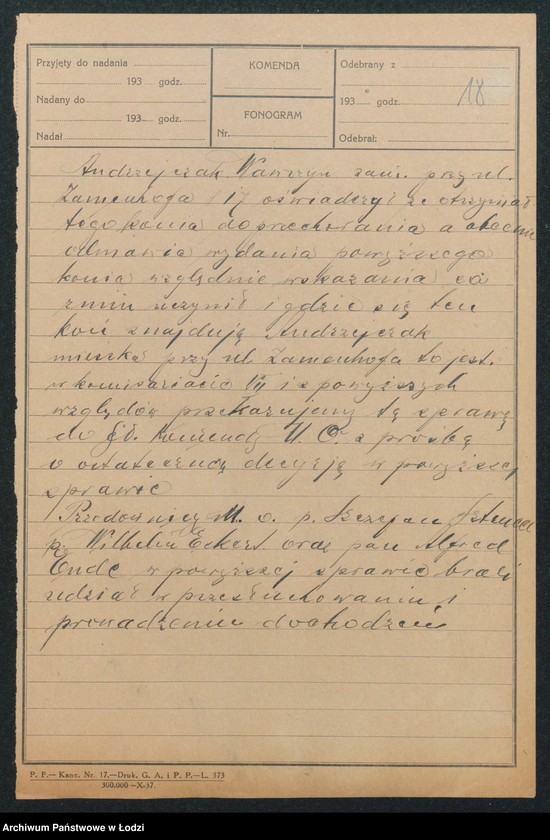 Przyjęty do nadania
193 godz.
Nadany do
193 godz.
Nadał
KOMENDA
FONOGRAM
Nr.
Odebrany z
193 godz.
18
Odebrał:
Andrzejczak Wawrzyn zam. przy ul.
Zamenhofa 17 oświadczył że otrzymał
tego konia do przechowania a obecnie
odmawia wydania powyższego
konia względnie wskazania co
z nim uczynił i gdzie się ten
koń znajduje Andrzejczak
mieszka przy ul. Zamenhofa to jest
w komisariacie i z powyższych
względów przekazujemy tę sprawę
do Gł. Komendy M. O. z prośbą
o ostateczną decyzję w powyższej
sprawie
Przodownicy M. O. p. Szczepan
p. Wilhelm Eckert oraz pan Alfred
Ende w powyższej sprawie brali
udział w przesłuchowaniu i
prowadzeniu dochodzeń
P. P.—Kanc. Nr. 17.—Druk. G. A. i P. P.—L. 373
300.000—X-37.
Archiwum Państwowe w Łodzi